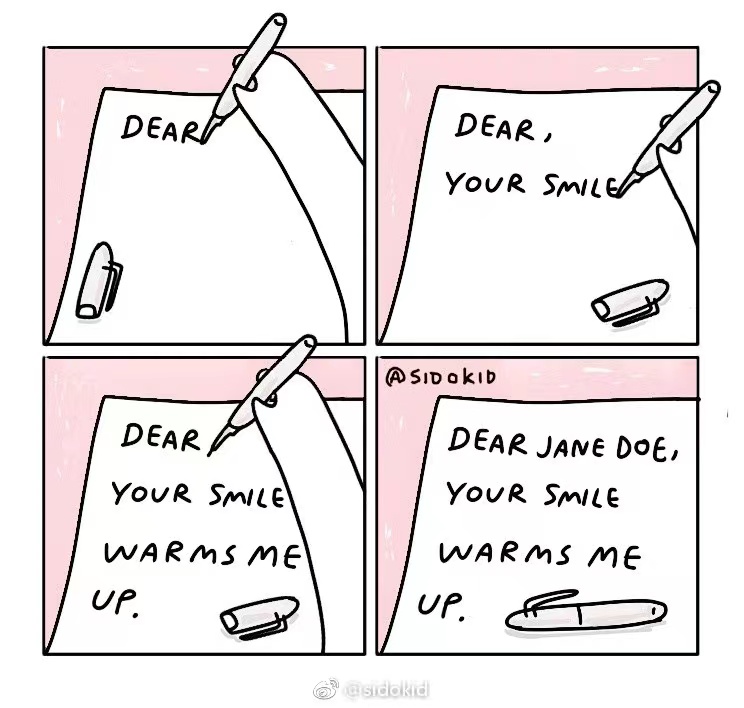 DEAR
DEAR,
YOUR SMILE
DEAR
YOUR SMILE
WARMS ME
UP.
@SIDOKID
DEAR JANE DOE,
YOUR SMILE
WARMS ME
UP.
@sidokid